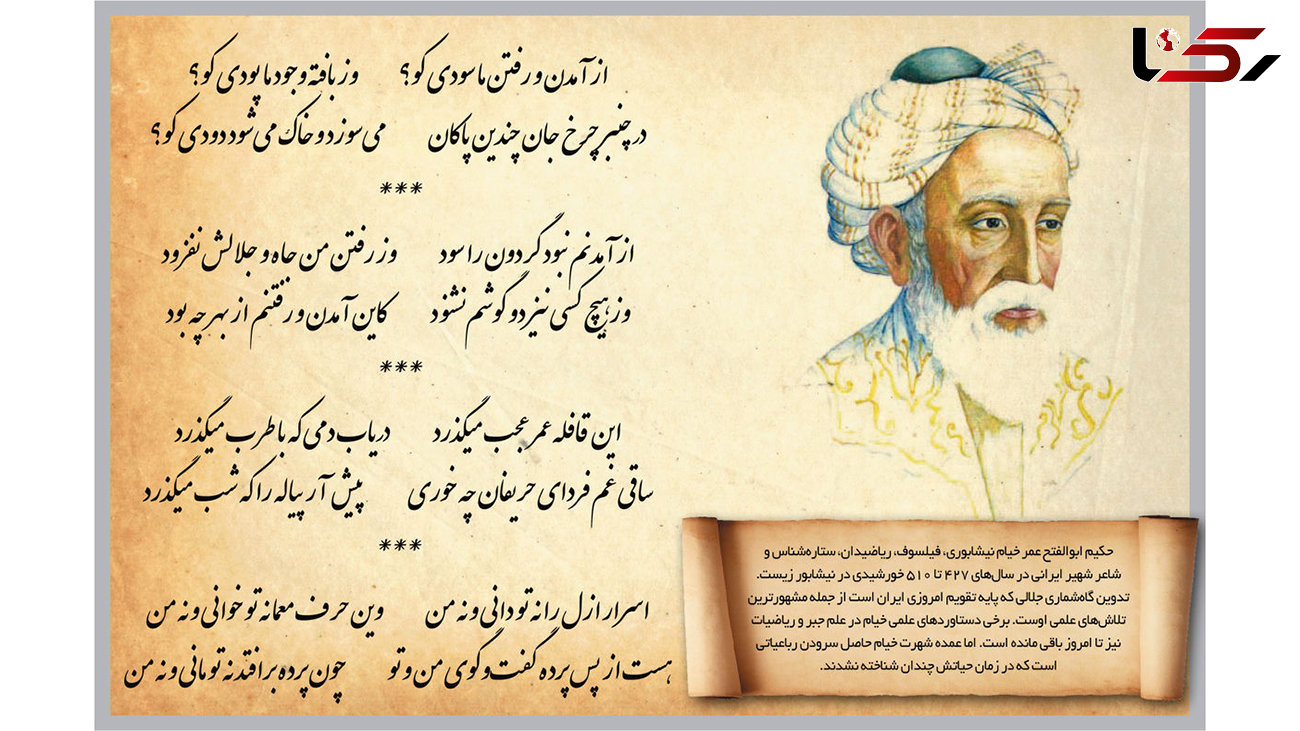 رکنا
از آمدن و رفتن ما سودی کو؟ وز بافته وجود ما پودی کو؟
در چنبر چرخ جان چندین پاکان می‌سوزد و خاک می‌شود دودی کو؟
***
از آمدنم نبود گردون را سود وز رفتن من جاه و جلالش نفزود
وز هیچ کسی نیز دو گوشم نشنود کاین آمدن و رفتنم از بهر چه بود
***
این قافله عمر عجب میگذرد دریاب دمی که با طرب میگذرد
ساقی غم فردای حریفان چه خوری پیش آر پیاله را که شب میگذرد
***
اسرار ازل را نه تو دانی و نه من وین حرف معما نه تو خوانی و نه من
هست از پس پرده گفت‌و‌گوی من و تو چون پرده برافتد نه تو مانی و نه من
حکیم ابوالفتح عمر خیام نیشابوری، فیلسوف، ریاضیدان، ستاره‌شناس و
شاعر شهیر ایرانی در سال‌های ۴۲۷ تا ۵۱۰ خورشیدی در نیشابور زیست.
تدوین گاه‌شماری جلالی که پایه تقویم امروزی ایران است از جمله مشهورترین
تلاش‌های علمی اوست. برخی دستاوردهای علمی خیام در علم جبر و ریاضیات
نیز تا امروز باقی مانده است. اما عمده شهرت خیام حاصل سرودن رباعیاتی
است که در زمان حیاتش چندان شناخته نشدند.